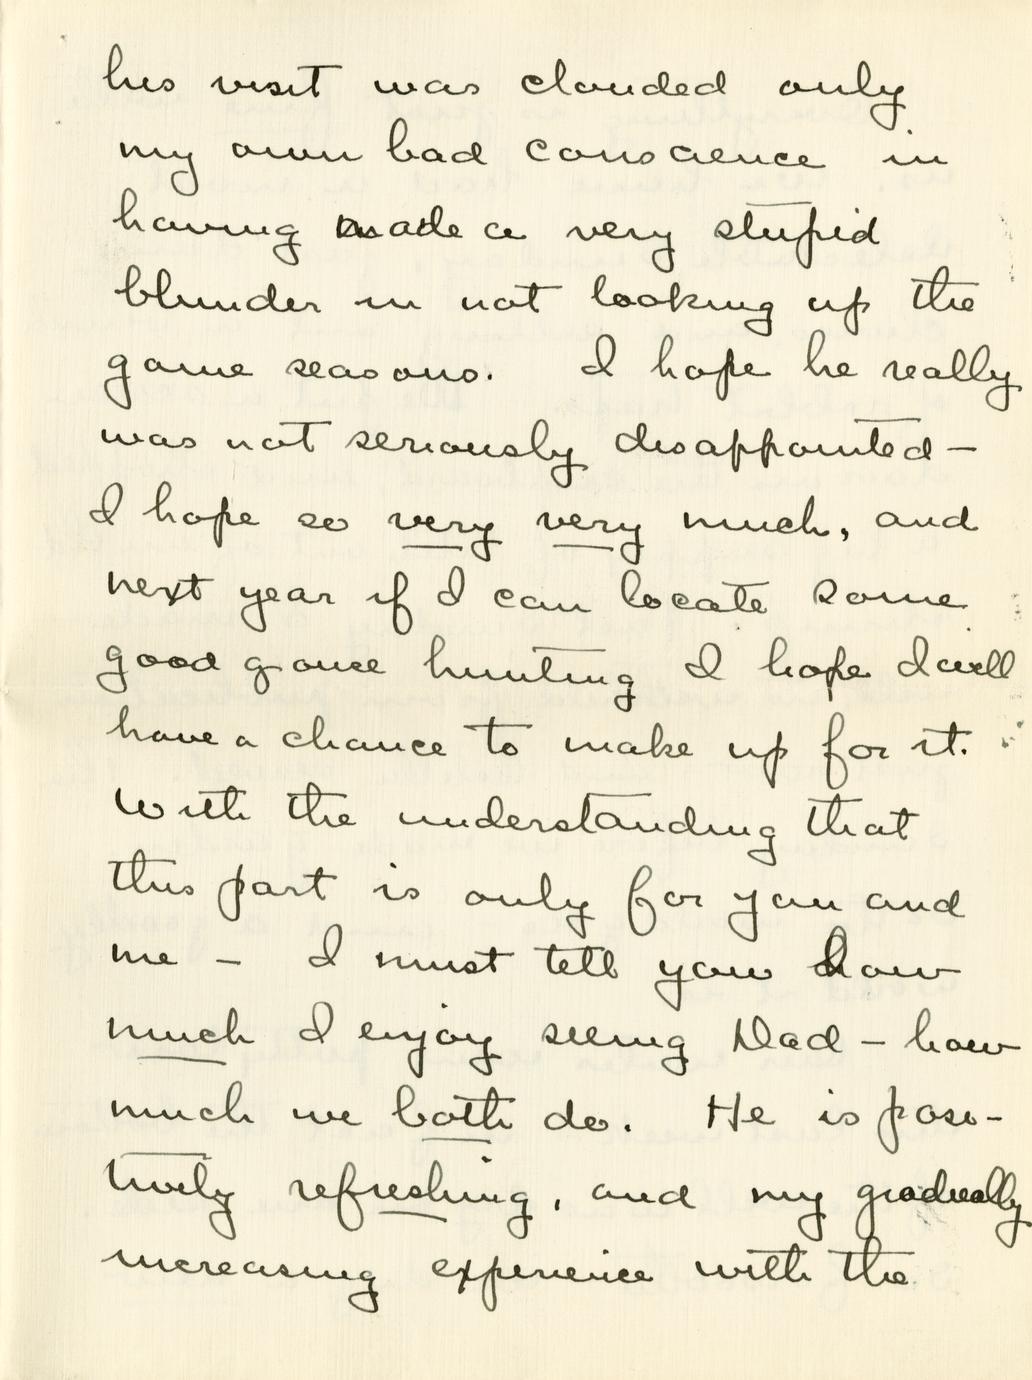 his visit was clouded only
my own bad conscience in
having made a very stupid
blunder in not looking up the
game seasons. I hope he really
was not seriously disappointed —
I hope so very very much, and
next year if I can locate some
good game hunting I hope I will
have a chance to make up for it.
With the understanding that
this part is only for you and
me — I must tell you how
much I enjoy seeing Dad — how
much we both do. He is posi-
tively refreshing, and my gradually
increasing experience with the